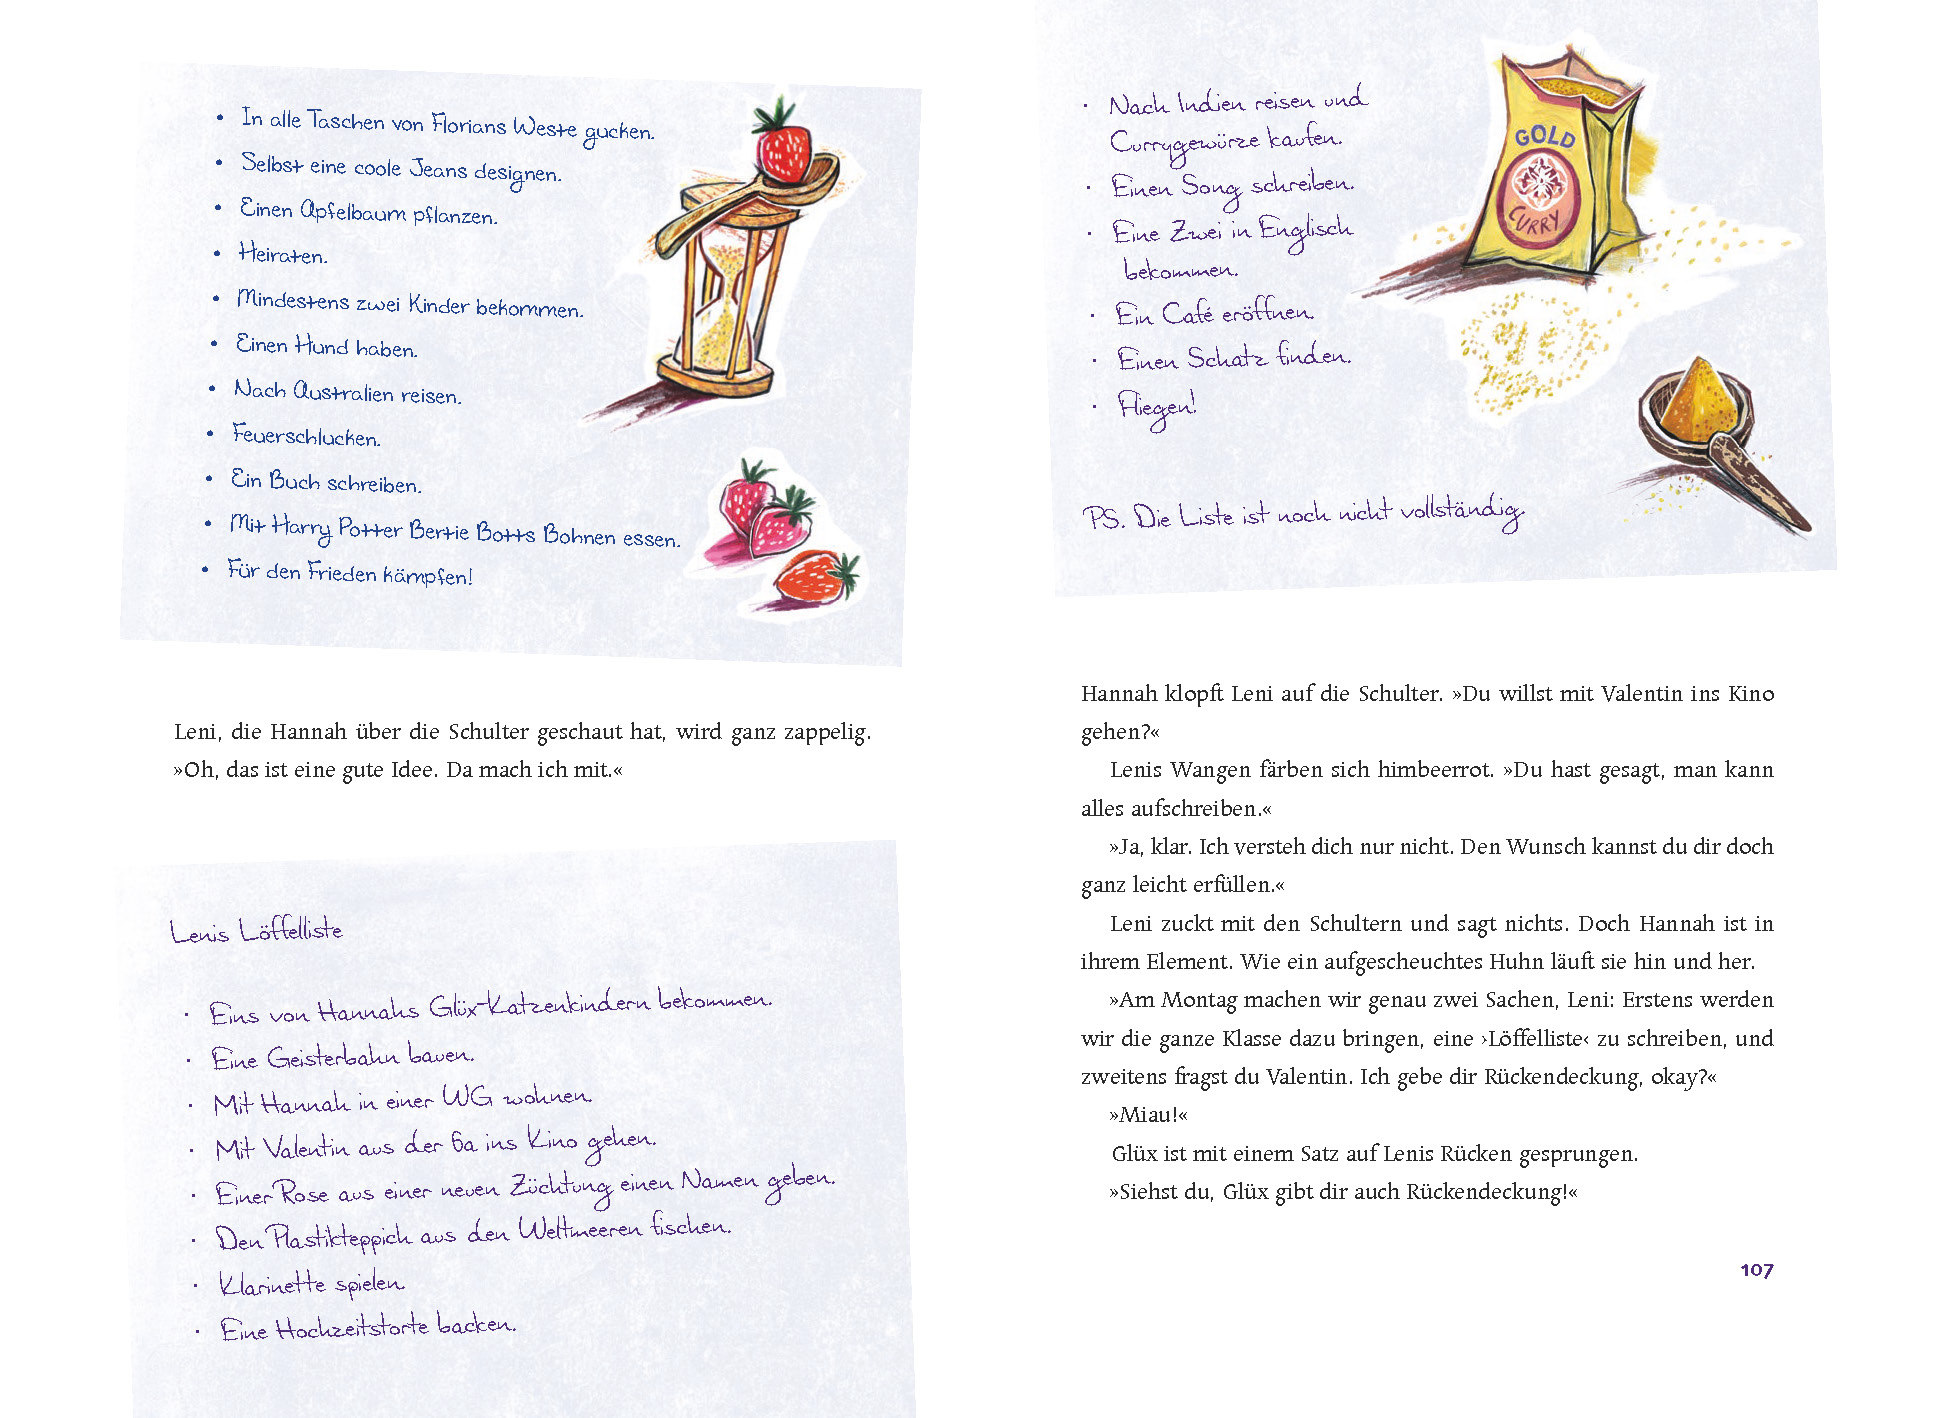 • In alle Taschen von Florians Weste gucken.
• Selbst eine coole Jeans designen.
• Einen Apfelbaum pflanzen.
• Heiraten.
• Mindestens zwei Kinder bekommen.
• Einen Hund haben.
• Nach Australien reisen.
• Feuerschlucken.
• Ein Buch schreiben.
• Mit Harry Potter Bertie Botts Bohnen essen.
• Für den Frieden kämpfen!
Leni, die Hannah über die Schulter geschaut hat, wird ganz zappelig.
»Oh, das ist eine gute Idee. Da mach ich mit.«
Lenis Löffelliste
· Eins von Hannahs Glüx-Katzenkindern bekommen.
· Eine Geisterbahn bauen.
· Mit Hannah in einer WG wohnen.
· Mit Valentin aus der 6a ins Kino gehen.
· Einer Rose aus einer neuen Züchtung einen Namen geben.
· Den Plastikteppich aus den Weltmeeren fischen.
· Klarinette spielen.
· Eine Hochzeitstorte backen.
· Nach Indien reisen und
Currygewürze kaufen.
· Einen Song schreiben.
· Eine Zwei in Englisch
bekommen.
· Ein Café eröffnen.
· Einen Schatz finden.
· Fliegen!
GOLD
CURRY
PS. Die Liste ist noch nicht vollständig.
Hannah klopft Leni auf die Schulter. »Du willst mit Valentin ins Kino
gehen?«
Lenis Wangen färben sich himbeerrot. »Du hast gesagt, man kann
alles aufschreiben.«
»Ja, klar. Ich versteh dich nur nicht. Den Wunsch kannst du dir doch
ganz leicht erfüllen.«
Leni zuckt mit den Schultern und sagt nichts. Doch Hannah ist in
ihrem Element. Wie ein aufgescheuchtes Huhn läuft sie hin und her.
»Am Montag machen wir genau zwei Sachen, Leni: Erstens werden
wir die ganze Klasse dazu bringen, eine ›Löffelliste‹ zu schreiben, und
zweitens fragst du Valentin. Ich gebe dir Rückendeckung, okay?«
»Miau!«
Glüx ist mit einem Satz auf Lenis Rücken gesprungen.
»Siehst du, Glüx gibt dir auch Rückendeckung!«
107